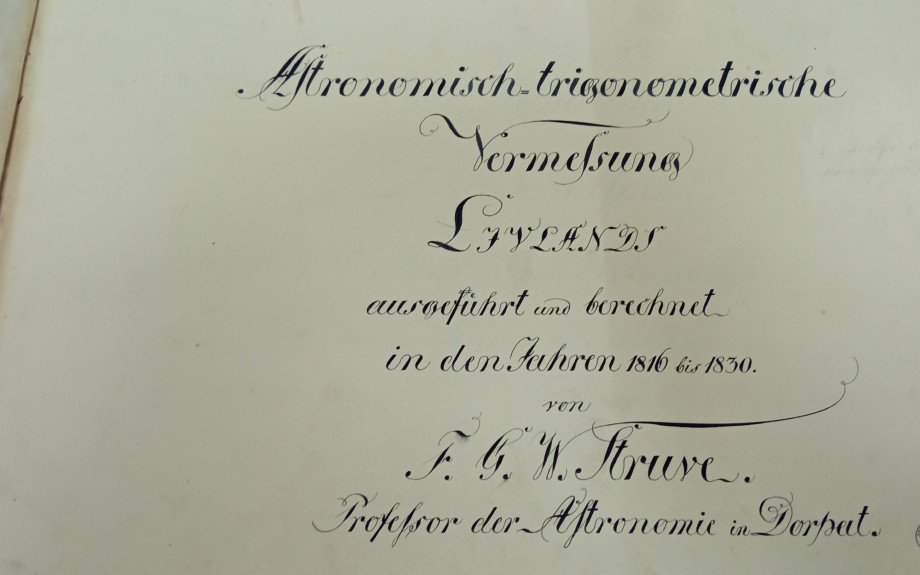 Astronomisch=trigonometrische
Vermeſsung
LIVLANDS
ausgeführt und berechnet
in den Jahren 1816 bis 1830.
von
F. G. W. Struve.
Profeſsor der Astronomie in Dorpat.